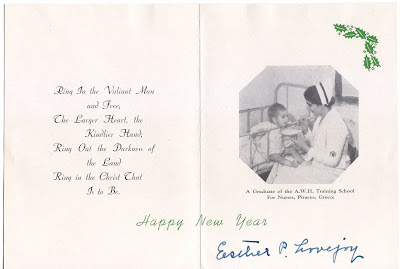 Ring In the Valiant Man
and Free,
The Larger Heart, the
Kindlier Hand;
Ring Out the Darkness of
the Land
Ring in the Christ That
Is to Be.
A Graduate of the A.W.H. Training School
For Nurses, Piraeus, Greece
Happy New Year
Esther P. Lovejoy